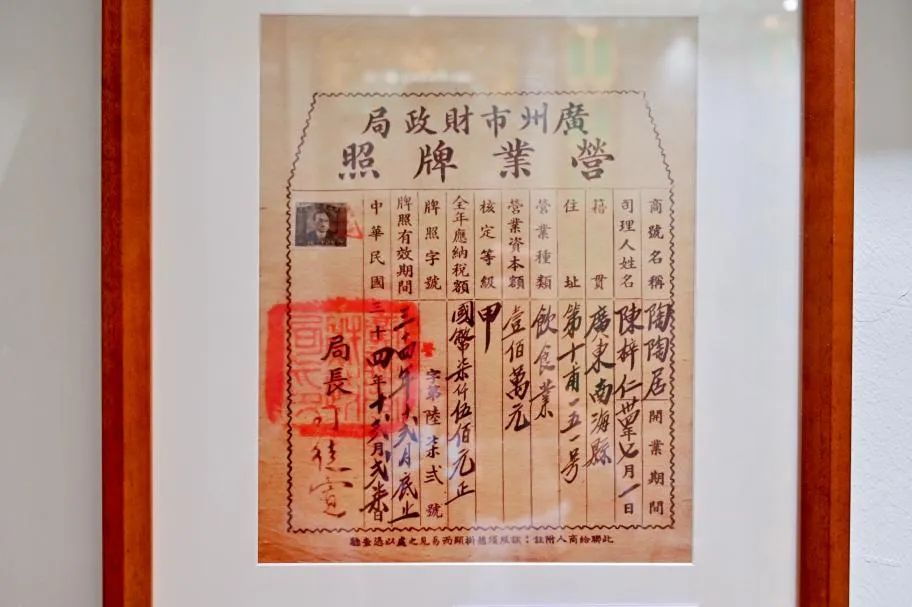 廣州市財政局
營業牌照
商號名稱 陶陶居 開業期間
司理人姓名 陳梓仁 卅四年七月一日
籍貫 廣東南海縣
住址 第十甫一五一号
營業種類 飲食業
營業資本額 壹佰萬元
核定等級 甲
全年應納稅額 國幣柒仟伍佰元正
牌照字號 字第陸柒弍號
牌照有效期間 三十四年十弍月底止
中華民國三十四年十六月弍柒日
局長
此聯給商人附註：該照須懸掛顯而易見之處以憑查驗